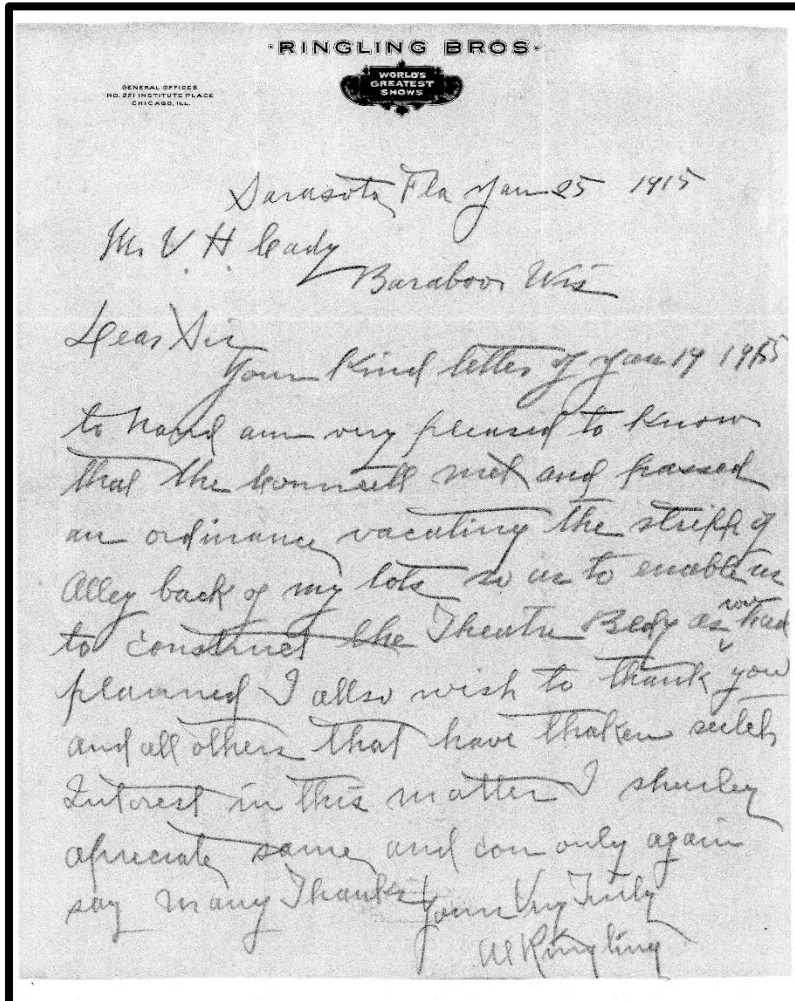 ·RINGLING BROS·
WORLD'S
GREATEST
SHOWS
GENERAL OFFICES
NO. 221 INSTITUTE PLACE
CHICAGO, ILL.
Sarasota, Fla Jan 25 1915
Mr. V. H. Cady
Baraboo, Wis
Dear Sir
Your Kind letter of Jan 19 1915
to hand am very pleased to know
that the Counsell met and passed
an ordinance vacating the stripp of
Alley back of my lots so as to enable us
to construct the Theatre Bldg as we had
planned I allso wish to thank you
and all others that have thaken sutch
Interest in this matter I shurley
apreciate same and can only again
say many Thanks Yours Very Truly
Al Ringling